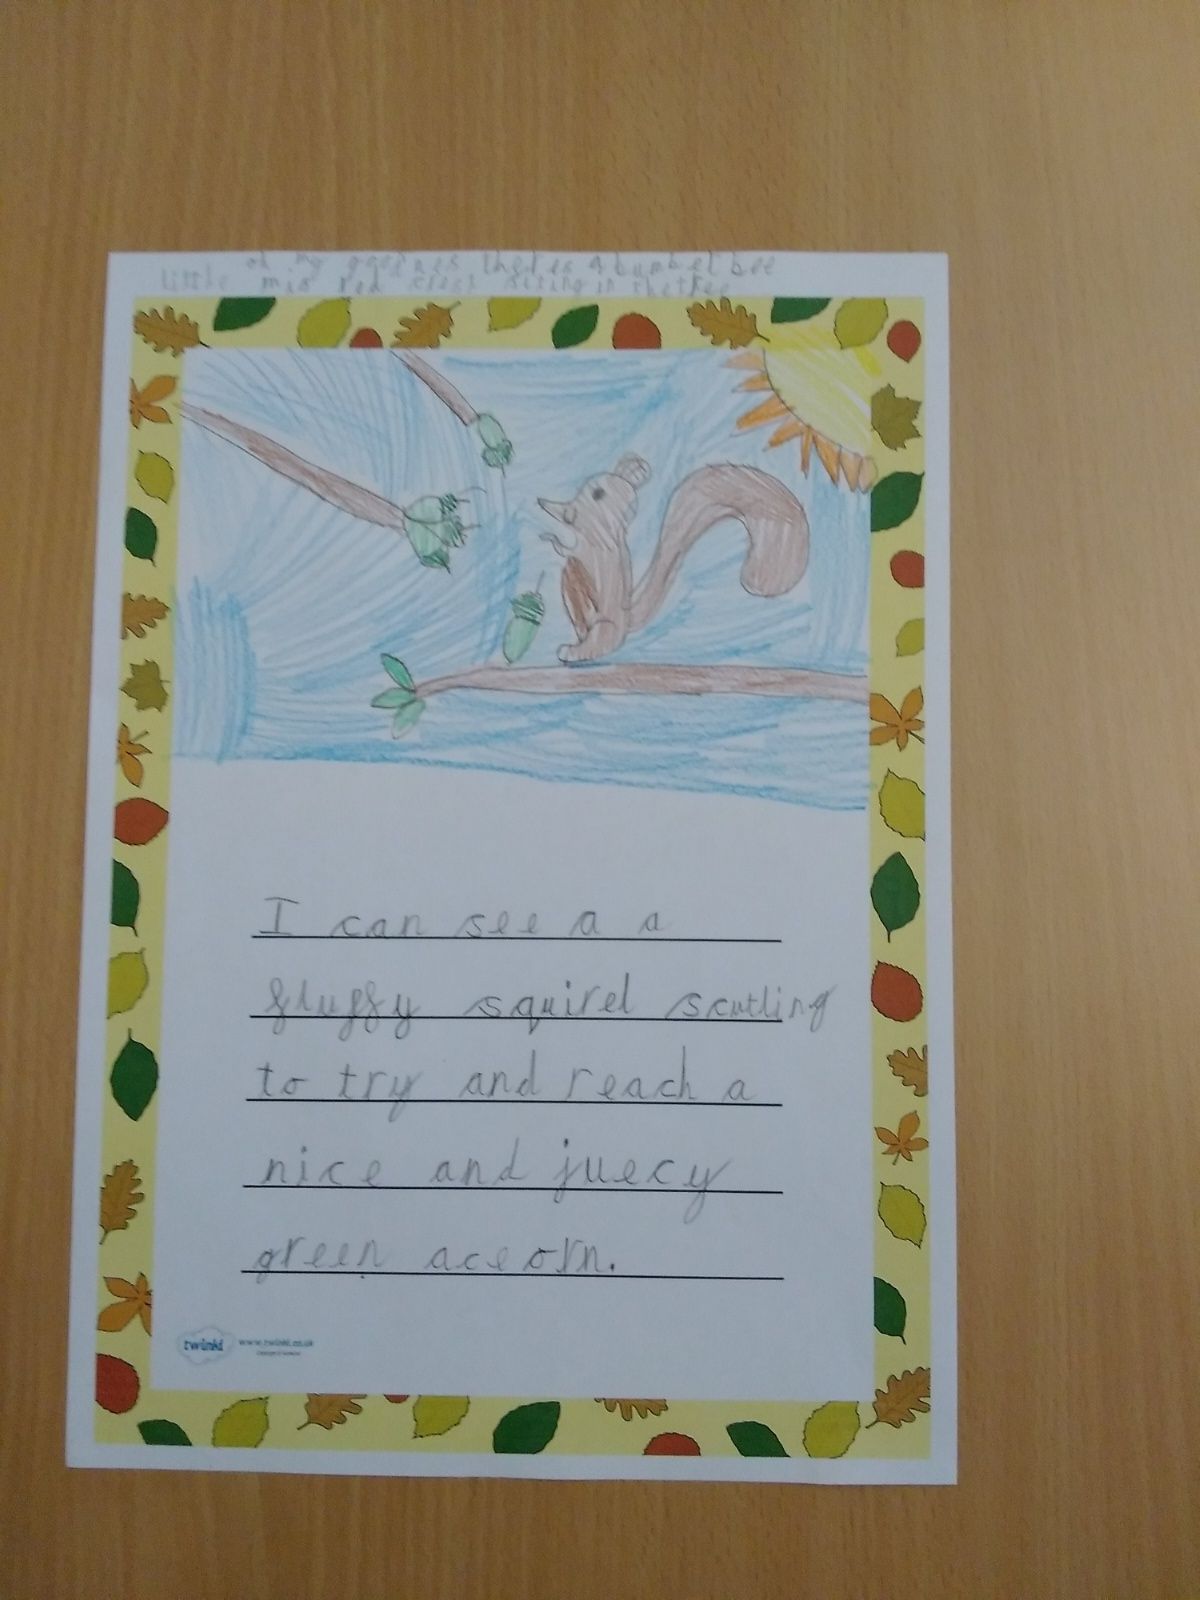 oh my goodnes theres a bumbel bee
little mis red siting in the tree
I can see a a
fluffy squirel scutling
to try and reach a
nice and juecy
green aceorn.
twinkl www.twinkl.co.uk